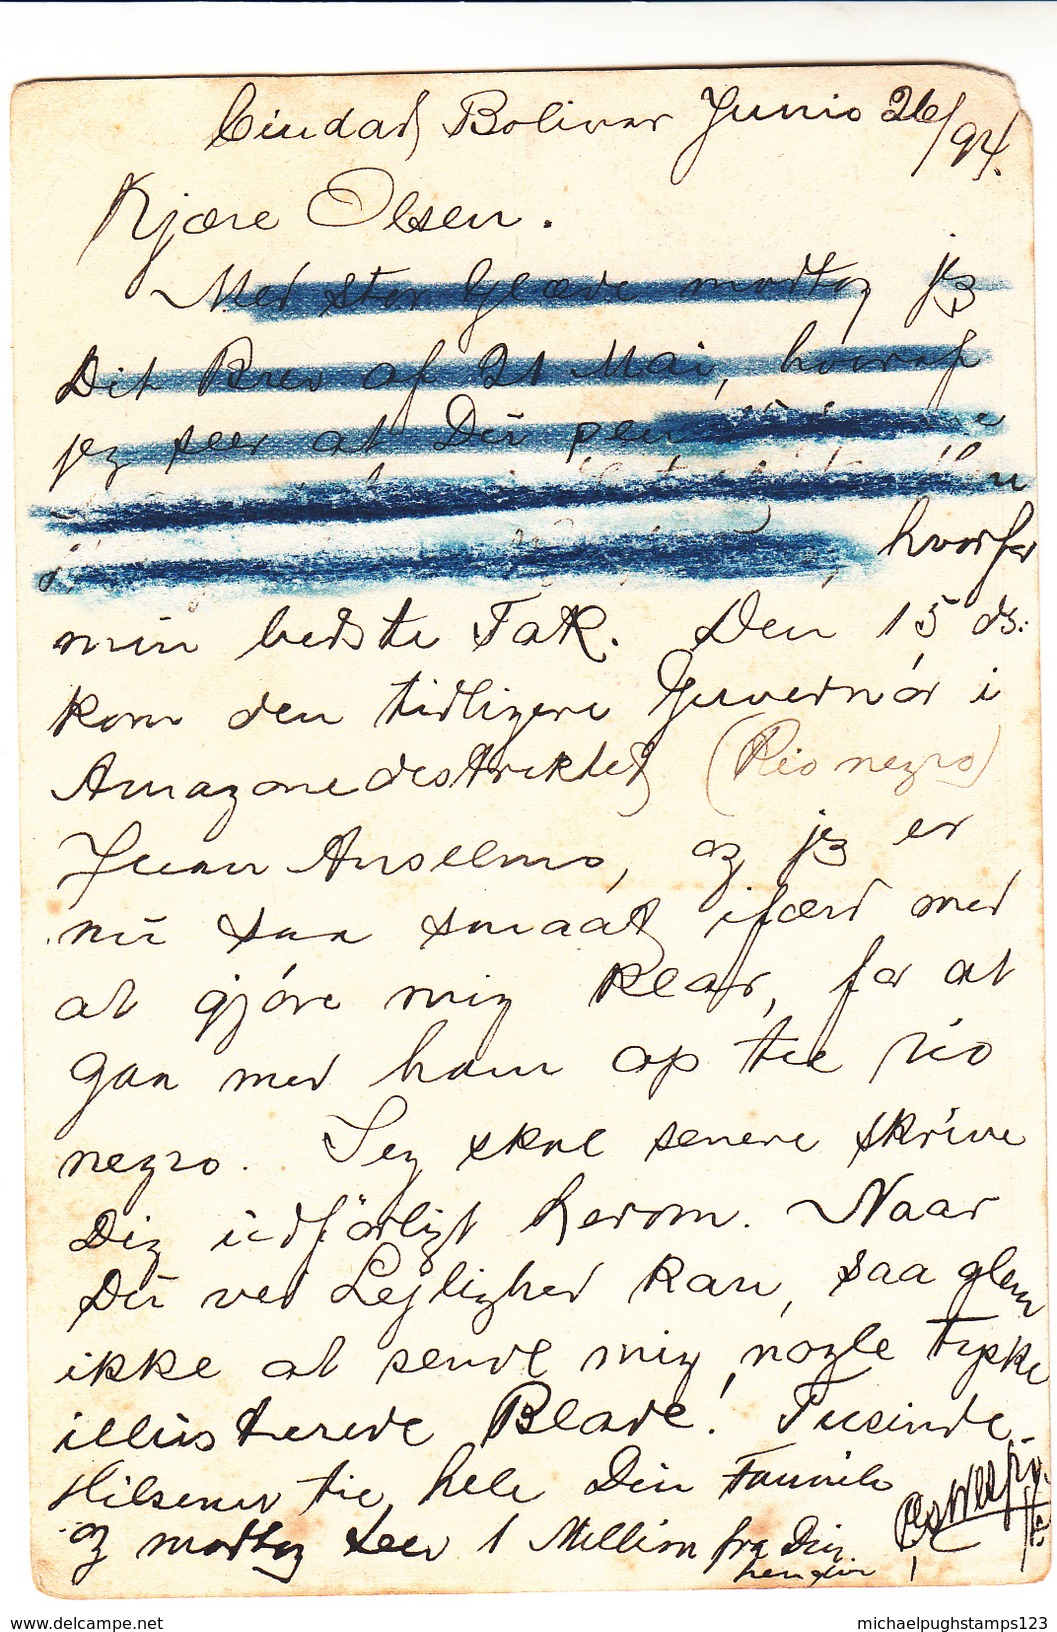 Ciudad Bolivar Junio 26/94.
Kjære Olsen.
Med stor Glæde modtog jeg
Dit Brev af 21 Mai, hvoraf
jeg seer at Dü
hvorfor
min bedste Tak. Den 15 ds:
kom den tidligere Guvernór i
Amazonedistriktet (Rio negro)
Juan Anselmo, og jeg er
nü saa smaat ifærd med
at gjóre mig klar, for at
gaa med ham op til rio
negro. Jeg skal senere skrive
Dig üdfórligt herom. Naar
Dü ved Lejlighed kan, saa glem
ikke at sende mig nogle tyske
illüstrerede Blade! Tusinde
Hilsener til hele Din Familie
og modtag selv 1 Million fra Din
hengivn
www.delcampe.net
michaelpughstamps123